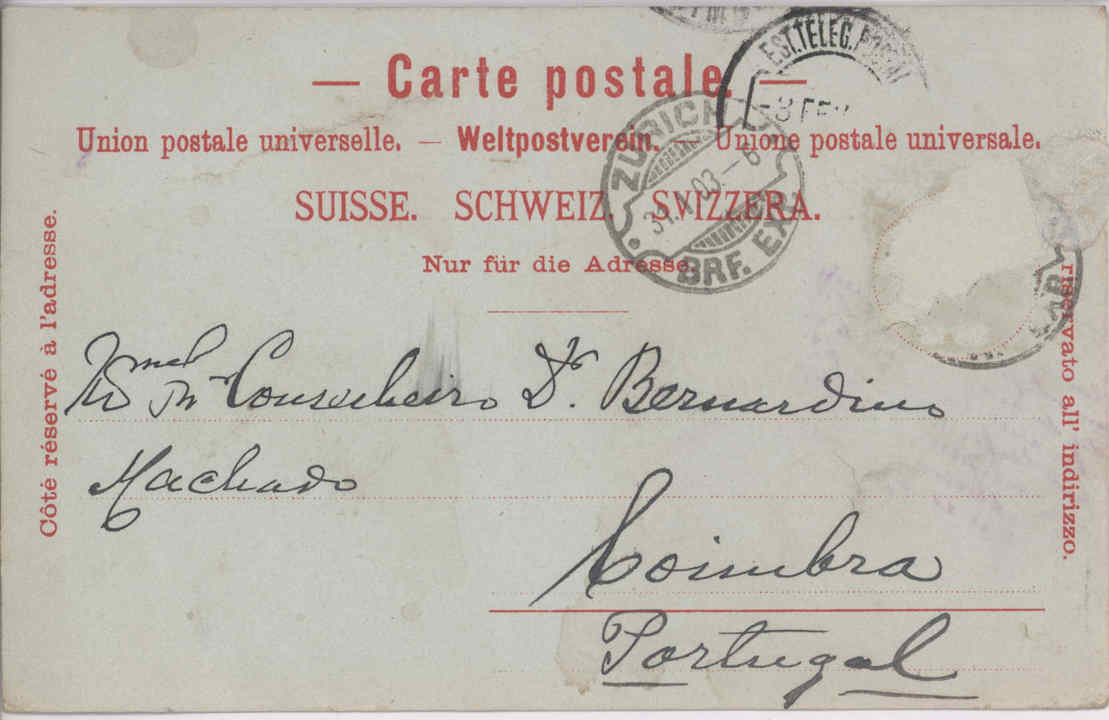 — Carte postale. —
Union postale universelle. — Weltpostverein. — Unione postale universale.
SUISSE. SCHWEIZ. SVIZZERA.
Nur für die Adresse.
Côté réservé à l'adresse.
riservato all' indirizzo.
EST. TELEG. POSTAL
-8 FEV
ZÜRICH
31.I.03.-6
BRF. EXP.
Conselheiro Dr. Bernardino
Machado
Coimbra
Portugal